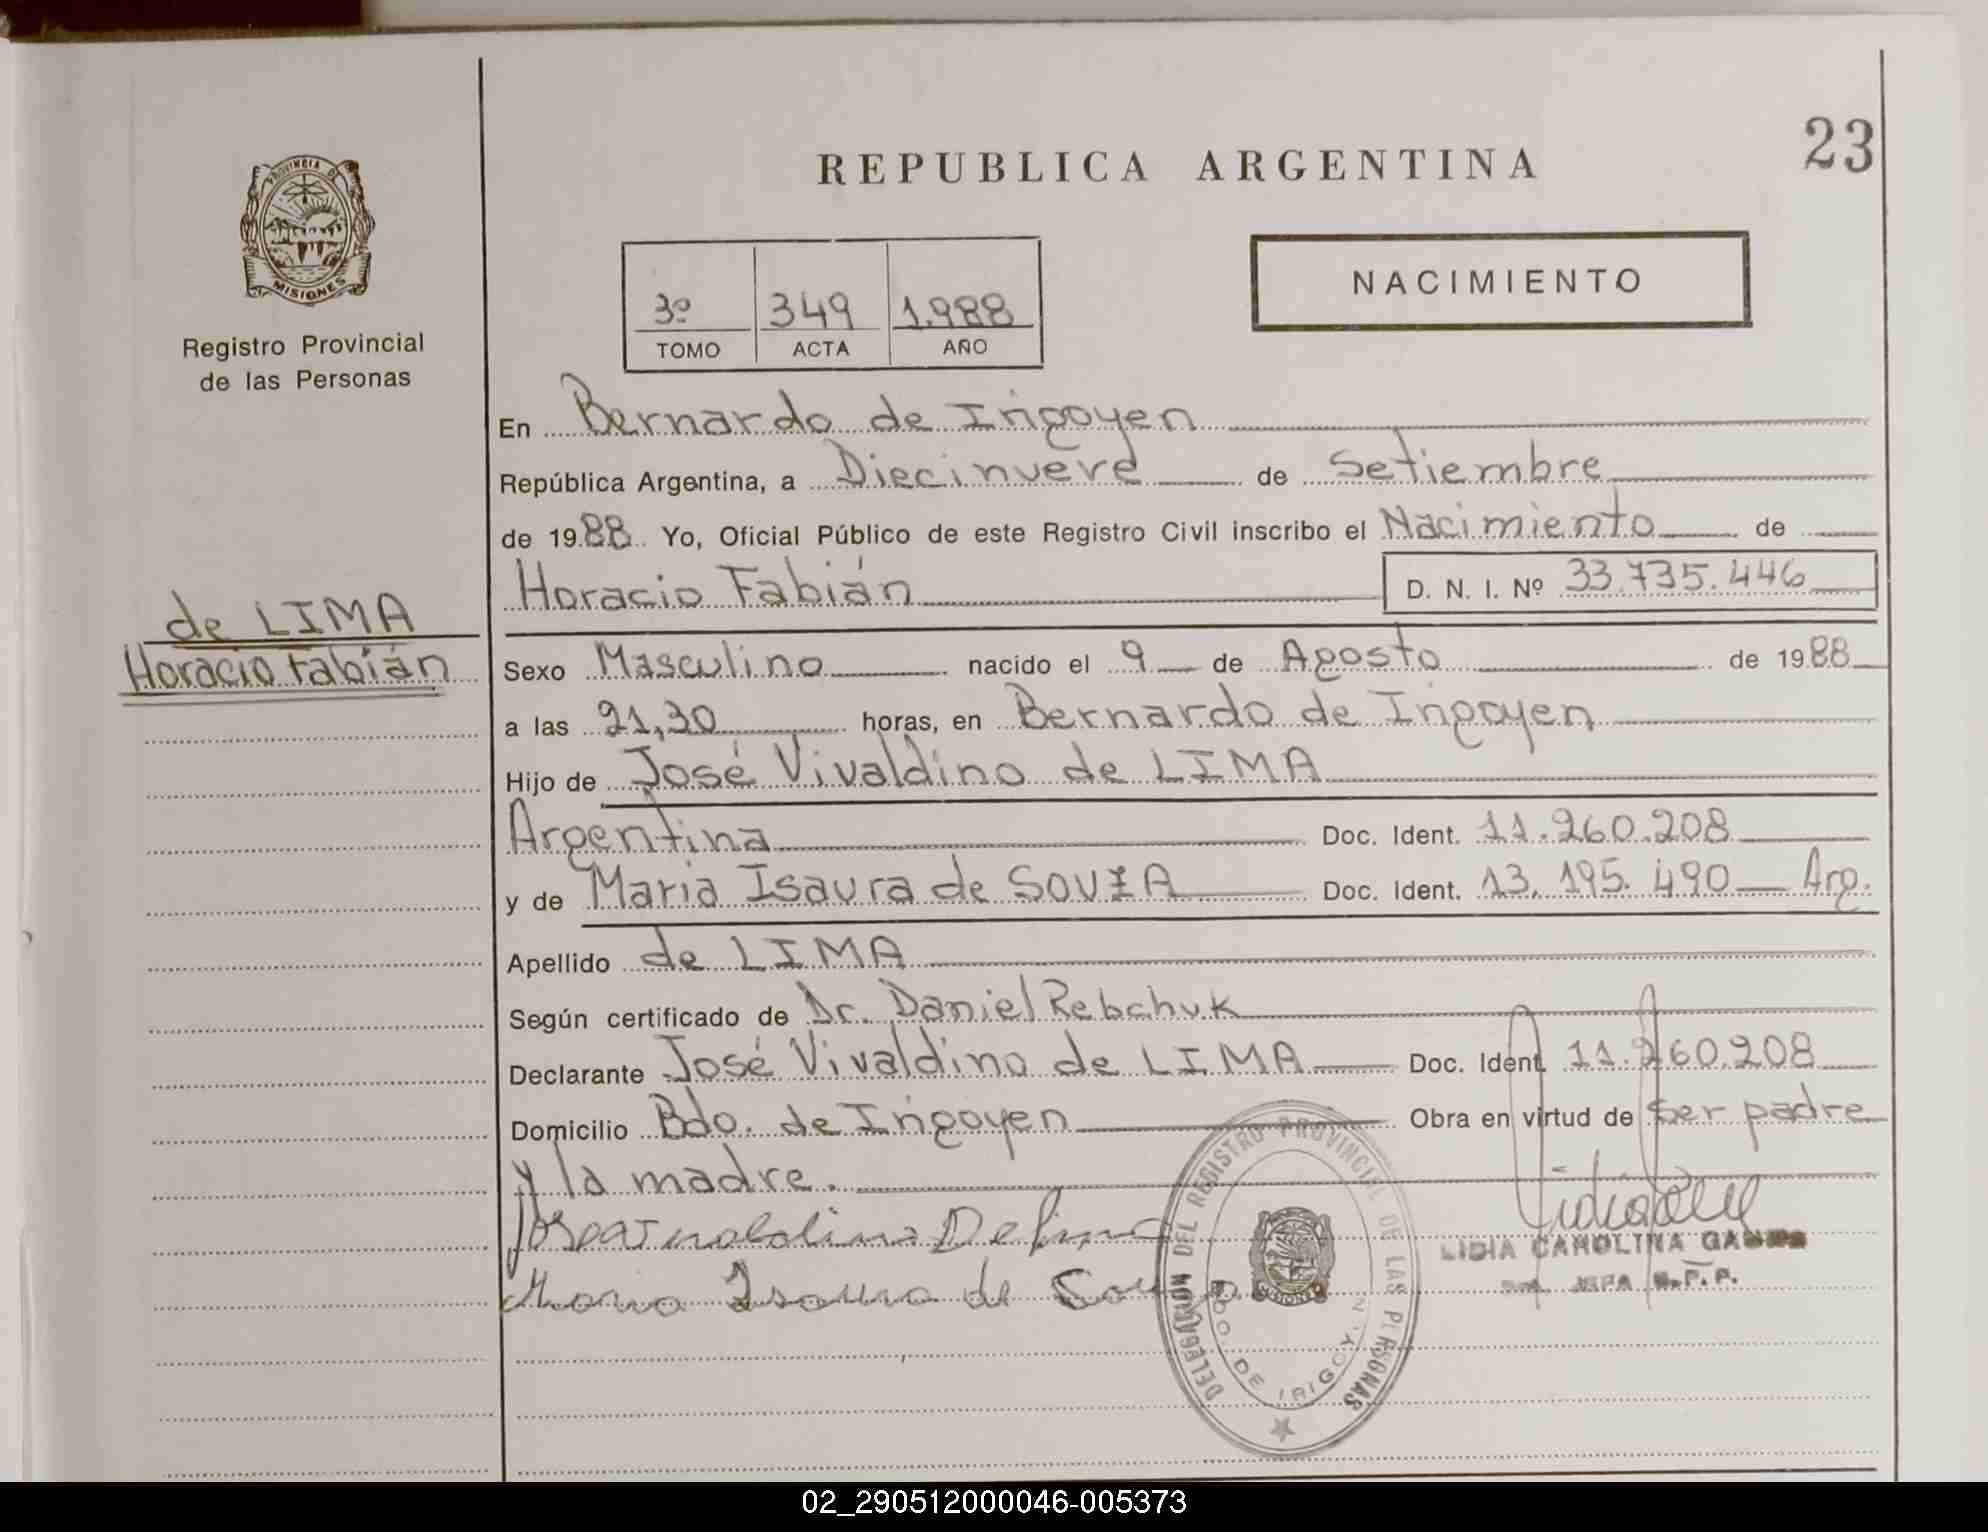 23
REPUBLICA ARGENTINA
PROVINCIA DE
MISIONES
Registro Provincial
de las Personas
3º 349 1.988
TOMO ACTA AÑO
NACIMIENTO
En Bernardo de Irigoyen
República Argentina, a Diecinueve de Setiembre
de 1988 Yo, Oficial Público de este Registro Civil inscribo el Nacimiento de
Horacio Fabián D. N. I. Nº 33.735.446
de LIMA
Horacio Fabián
Sexo Masculino nacido el 9 de Agosto de 1988
a las 21,30 horas, en Bernardo de Irigoyen
Hijo de José Vivaldino de LIMA
Argentina Doc. Ident. 11.260.208
y de Maria Isaura de SOUZA Doc. Ident. 13.195.490 Arg.
Apellido de LIMA
Según certificado de Dr. Daniel Rebchuk
Declarante José Vivaldino de LIMA Doc. Ident. 11.260.208
Domicilio Bdo. de Irigoyen Obra en virtud de ser padre
y la madre.
Maria Isaura de Souza
DELEGACION DEL REGISTRO PROVINCIAL DE LAS PERSONAS
BDO. DE IRIGOYEN
MISIONES
LIDIA CAROLINA
R.P.P.
02_290512000046-005373